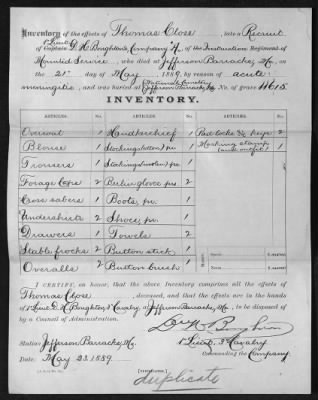 Inventory of the effects of Thomas Close, late a Recruit
1 Lieut
of Captain D. H. Boughton's Company A, of the Instruction Regiment of
Mounted Service, who died at Jefferson Barracks, Mo., on
the 21st day of May, 1889, by reason of acute
National Cemetery
meningitis, and was buried at Jefferson Barracks, Mo. No. of grave 11615.
INVENTORY.
ARTICLES. No. ARTICLES. No. ARTICLES. No.
Overcoat 1 Handkerchief 1 Padlocks & keys 2
Blouse 1 Stockings (cotton) pr. 1 Marking stamp
(and outfit) 1
Trousers 1 Stockings (woolen) pr. 1
Forage Caps 2 Berlin gloves prs. 2
Cross sabers 1 Boots, pr. 1
Undershirts 2 Shoes, pr. 1
Drawers 1 Towels 2
Stable frocks 2 Button stick 1
Overalls 2 Button brush 1
I CERTIFY, on honor, that the above Inventory comprises all the effects of
Thomas Close, deceased, and that the effects are in the hands
of 1 Lieut. D. H. Boughton, 3 Cavalry, at Jefferson Barracks, Mo., to be disposed of
by a Council of Administration.
D. H. Boughton
Station: Jefferson Barracks, Mo. 1 Lieut. 3 Cavalry
Date: May 23. 1889. Commanding the Company.
duplicate